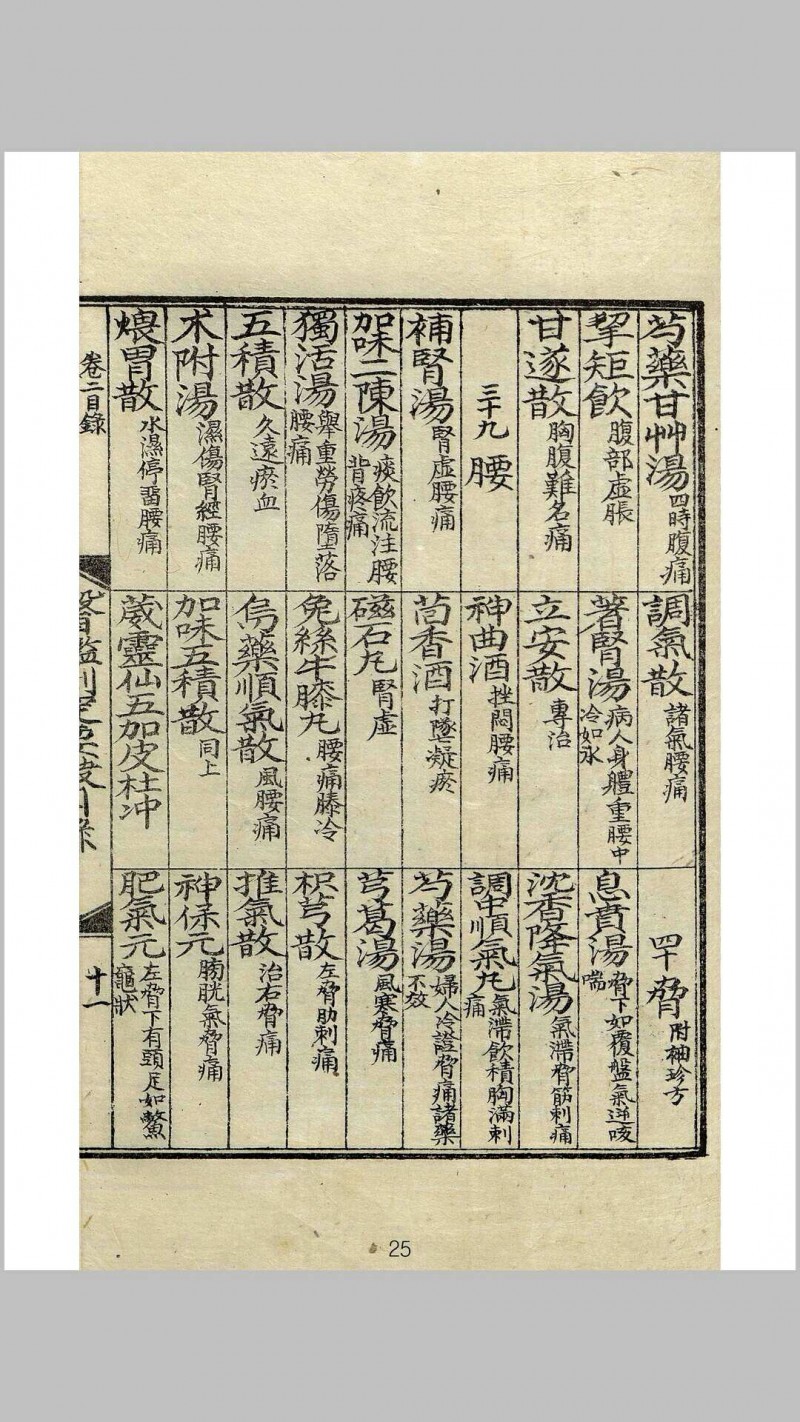 芍藥甘艸湯 四時腹痛
挈矩飲 腹部虛脹
甘遂散 胸腹難名痛
三十九 腰
補腎湯 腎虛腰痛
加味二陳湯 痰飲流注腰背疼痛
獨活湯 舉重勞傷墮落腰痛
五積散 久遠瘀血
朮附湯 濕傷腎經腰痛
煨胃散 水濕停畱腰痛
調氣散 諸氣腰痛
著腎湯 病人身體重腰中冷如氷
立安散 專治
神曲酒 挫悶腰痛
茴香酒 打墜凝瘀
磁石丸 腎虛
兔絲牛膝丸 腰痛膝冷
烏藥順氣散 風腰痛
加味五積散 同上
葳靈仙五加皮杜冲
四十 脅 附袖珍方
息賁湯 脅下如覆盤氣逆咳喘
沈香降氣湯 氣滯脅筋刺痛
調中順氣丸 氣滯飲積胸滿刺痛
芍藥湯 婦人冷證脅痛諸藥不效
芎葛湯 風寒脅痛
枳芎散 左脅肋刺痛
推氣散 治右脅痛
神保元 膀胱氣脅痛
肥氣元 左脅下有頭足如鱉龜狀
卷二目錄
十一
25